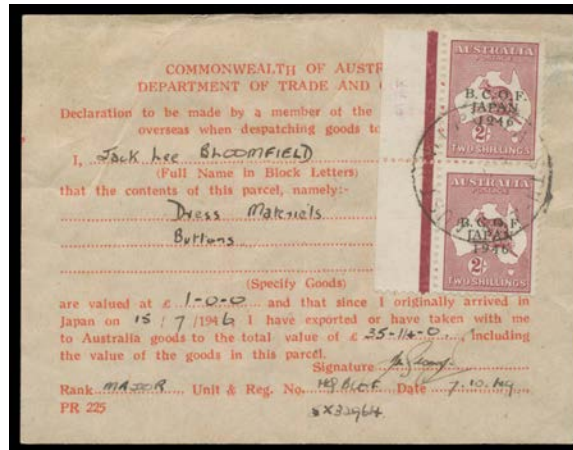 COMMONWEALTH OF AUSTR
DEPARTMENT OF TRADE AND C
Declaration to be made by a member of the
overseas when despatching goods to
I, Jack Lee BLOOMFIELD
(Full Name in Block Letters)
that the contents of this parcel, namely:-
Dress Materials
Buttons
(Specify Goods)
are valued at £ 1-0-0 and that since I originally arrived in
Japan on 15 / 7 / 1946 I have exported or have taken with me
to Australia goods to the total value of £ 35-14-0, including
the value of the goods in this parcel.
Signature
Rank MAJOR Unit & Reg. No. HQ BCOF Date 7.10.49
PR 225
SX32964
AUSTRALIA
POSTAGE
B.C.O.F.
JAPAN
1946
2/-
TWO SHILLINGS
AUSTRALIA
POSTAGE
B.C.O.F.
JAPAN
1946
2/-
TWO SHILLINGS